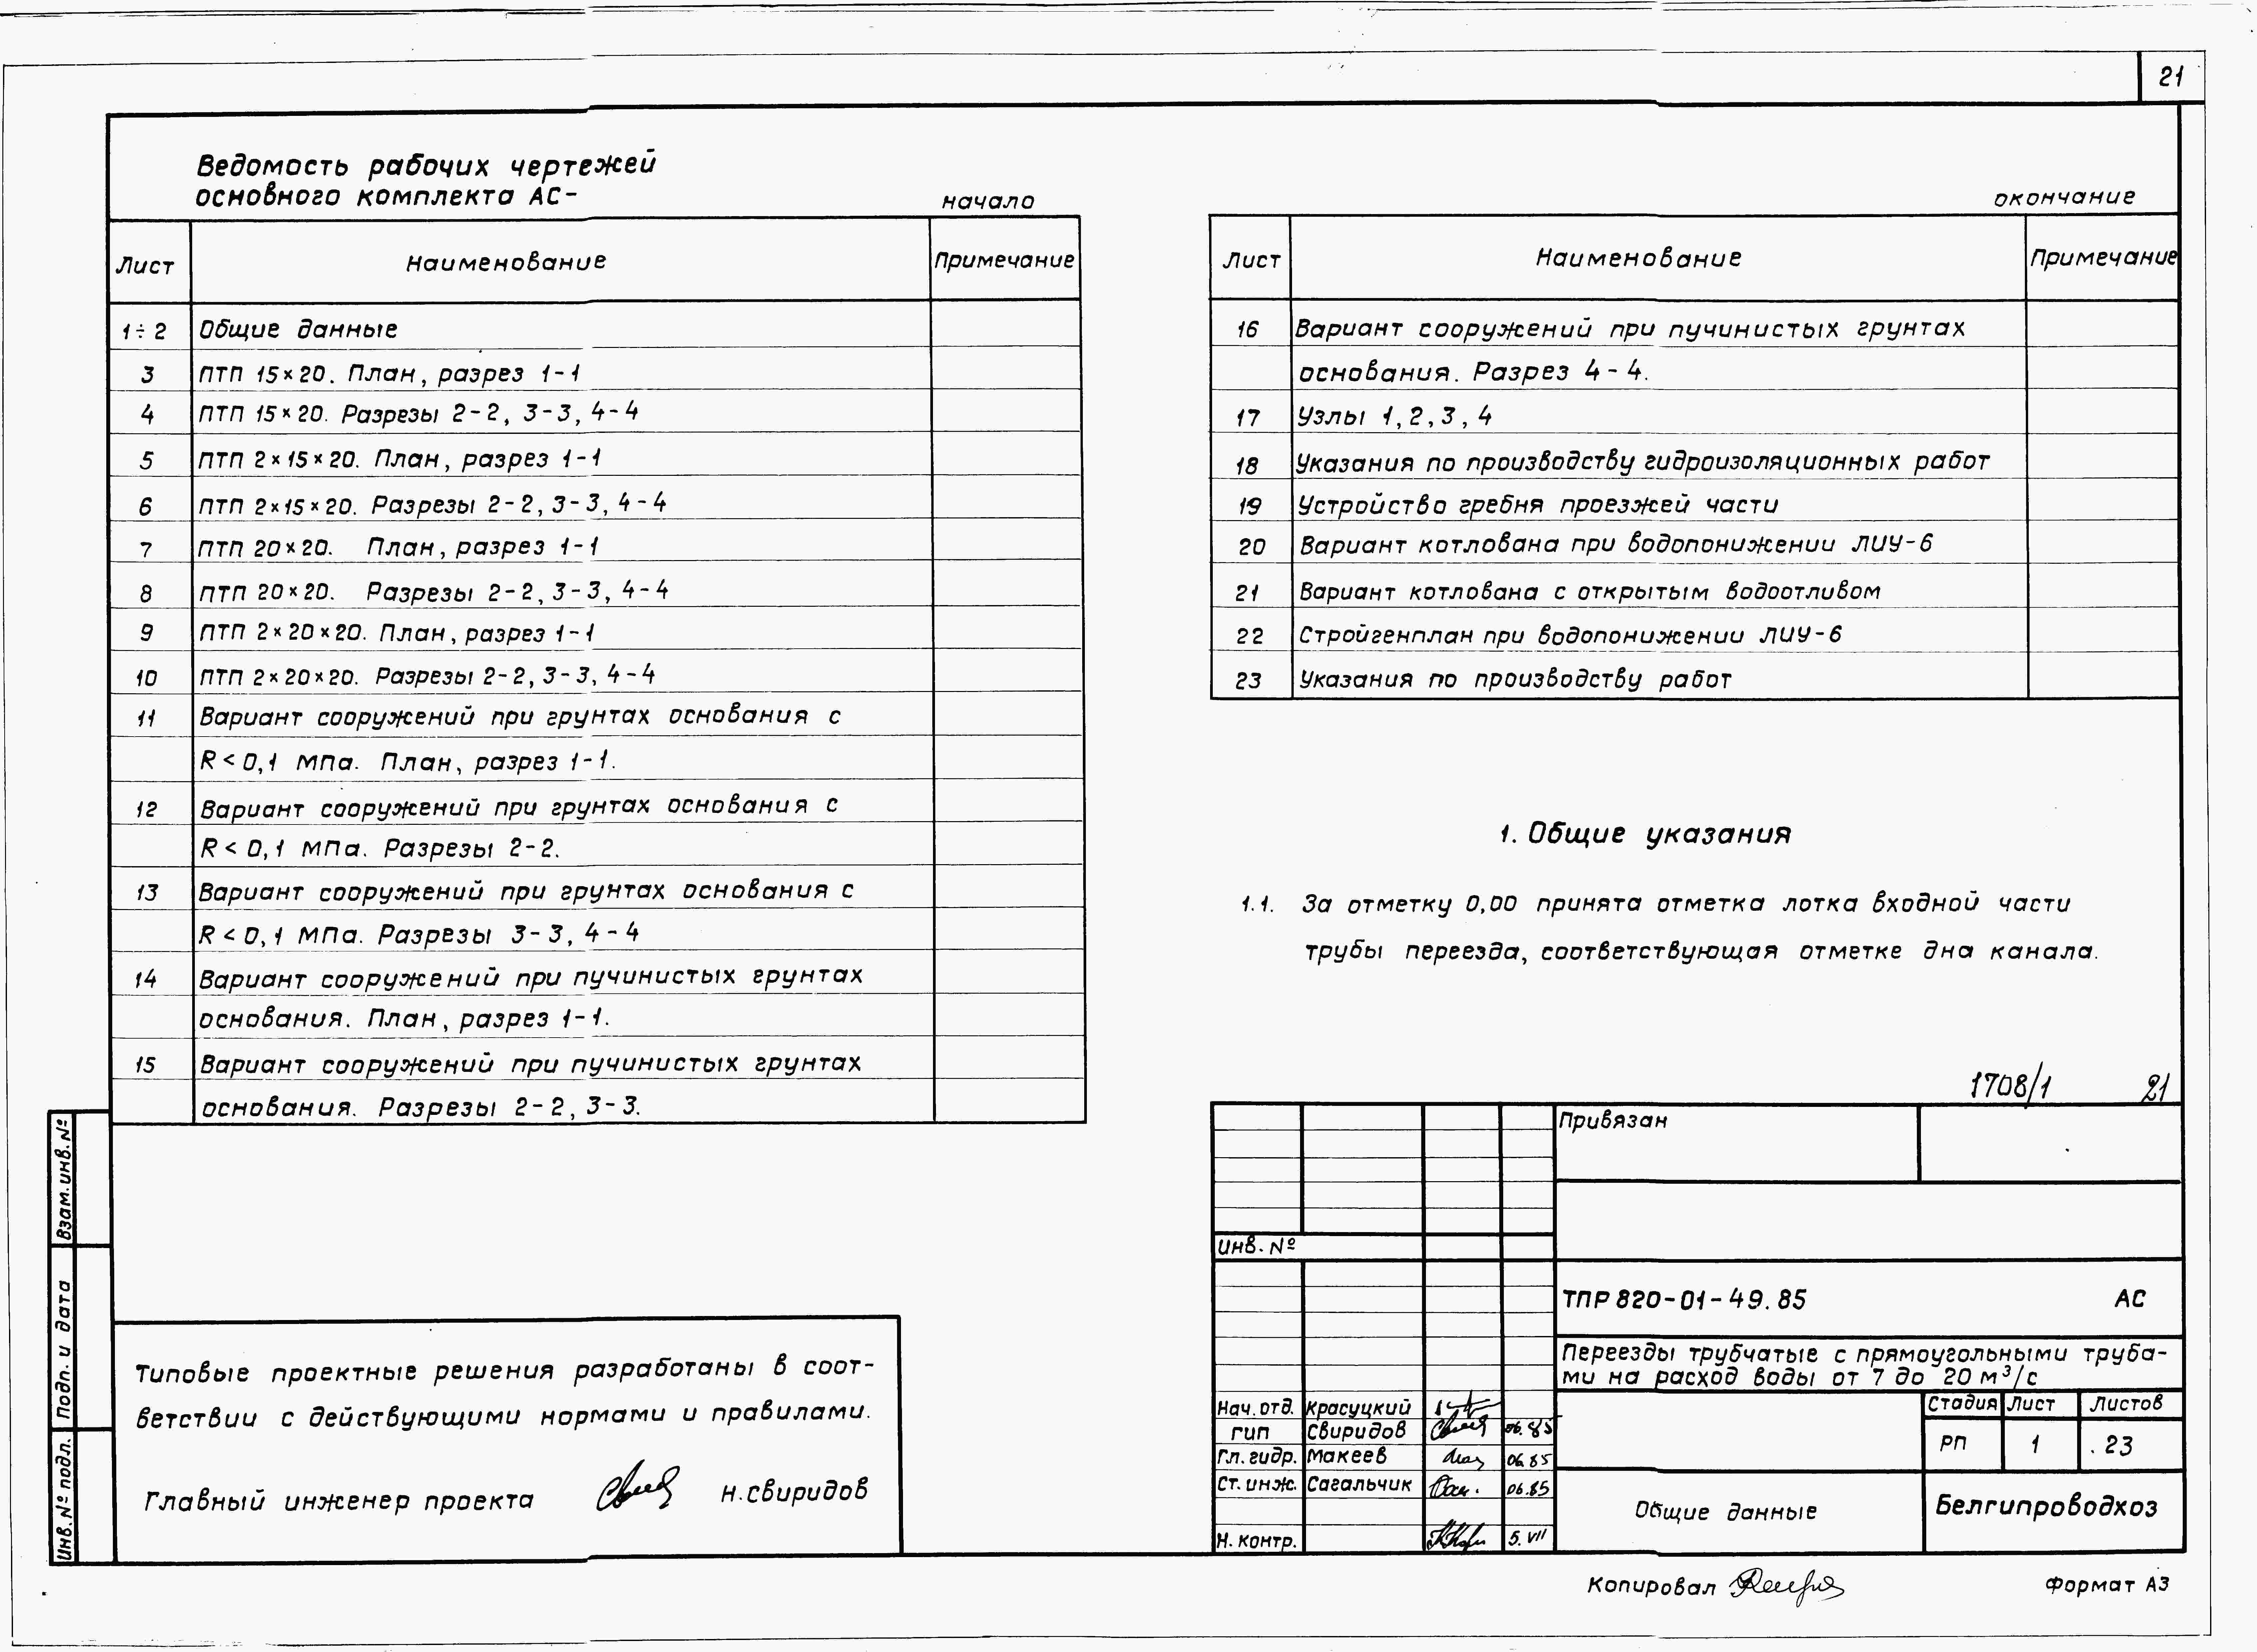 21
Ведомость рабочих чертежей
основного комплекта АС-
начало
Лист Наименование Примечание
1÷2 Общие данные
3 ПТП 15×20. План, разрез 1-1
4 ПТП 15×20. Разрезы 2-2, 3-3, 4-4
5 ПТП 2×15×20. План, разрез 1-1
6 ПТП 2×15×20. Разрезы 2-2, 3-3, 4-4
7 ПТП 20×20. План, разрез 1-1
8 ПТП 20×20. Разрезы 2-2, 3-3, 4-4
9 ПТП 2×20×20. План, разрез 1-1
10 ПТП 2×20×20. Разрезы 2-2, 3-3, 4-4
11 Вариант сооружений при грунтах основания с
R<0,1 МПа. План, разрез 1-1.
12 Вариант сооружений при грунтах основания с
R<0,1 МПа. Разрезы 2-2.
13 Вариант сооружений при грунтах основания с
R<0,1 МПа. Разрезы 3-3, 4-4
14 Вариант сооружений при пучинистых грунтах
основания. План, разрез 1-1.
15 Вариант сооружений при пучинистых грунтах
основания. Разрезы 2-2, 3-3.
окончание
Лист Наименование Примечание
16 Вариант сооружений при пучинистых грунтах
основания. Разрез 4-4.
17 Узлы 1, 2, 3, 4
18 Указания по производству гидроизоляционных работ
19 Устройство гребня проезжей части
20 Вариант котлована при водопонижении ЛИУ-6
21 Вариант котлована с открытым водоотливом
22 Стройгенплан при водопонижении ЛИУ-6
23 Указания по производству работ
1. Общие указания
1.1. За отметку 0,00 принята отметка лотка входной части
трубы переезда, соответствующая отметке дна канала.
1708/1 21
Взам. инв. №
Подп. и дата
Инв. № подл.
Типовые проектные решения разработаны в соот-
ветствии с действующими нормами и правилами.
Главный инженер проекта Н. Свиридов
Привязан
Инв. №
ТПР 820-01-49.85 АС
Переезды трубчатые с прямоугольными труба-
ми на расход воды от 7 до 20 м³/с
Стадия Лист Листов
РП 1 23
Нач. отд. Красуцкий
ГИП Свиридов 06.85
Гл. гидр. Макеев 06.85
Ст. инж. Сагальчик 06.85
Н. контр. 5.VII
Общие данные
Белгипроводхоз
Копировал
Формат А3